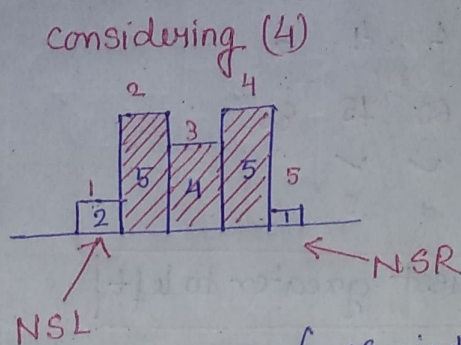 considering (4)
2 4
3
1 5
2 5 4 5 1
NSL
NSR